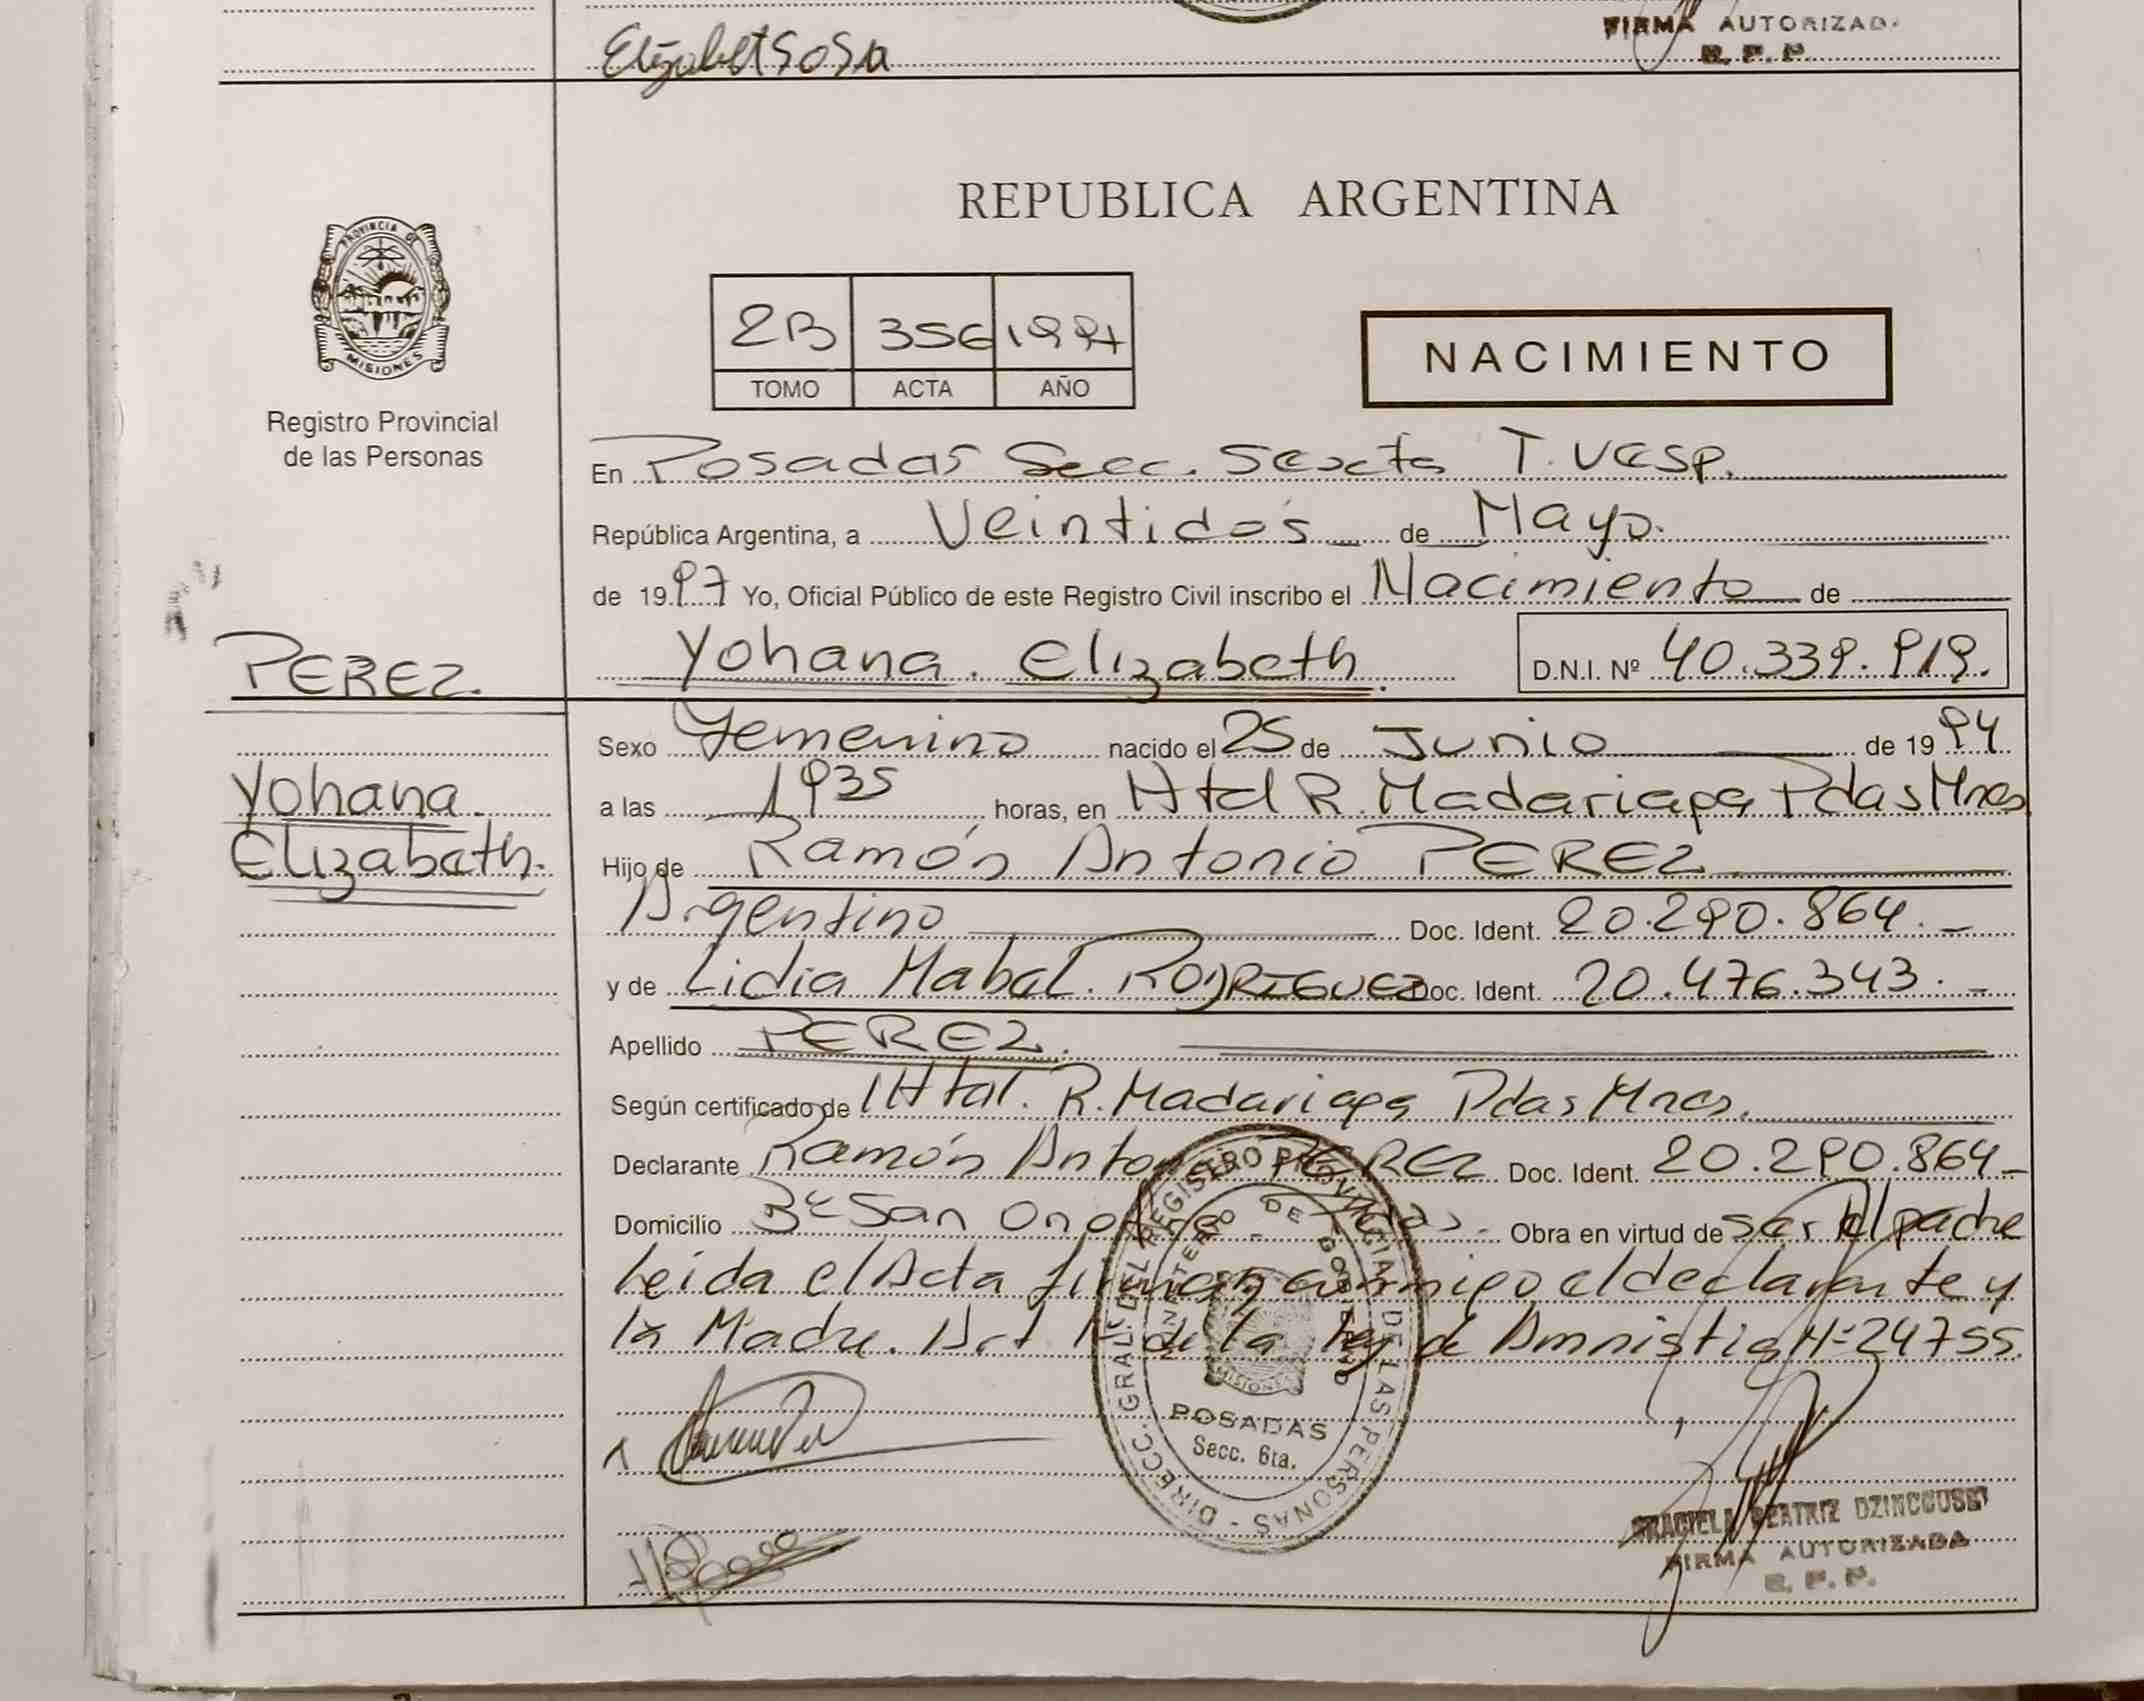 Elizabet SOSA
FIRMA AUTORIZADA
R. P. P.
REPUBLICA ARGENTINA
PROVINCIA DE
MISIONES
Registro Provincial
de las Personas
2B 356
TOMO ACTA AÑO
NACIMIENTO
En Posadas Secc. Sexta T. Vesp.
República Argentina, a Veintidos de Mayo.
de 1997 Yo, Oficial Público de este Registro Civil inscribo el Nacimiento de
Yohana. Elizabeth. D.N.I. Nº 40.339.919.
PEREZ.
Yohana.
Elizabeth.
Sexo Femenino nacido el 25 de Junio de 1994
a las 1935 horas, en Htal R. Madariaga Pdas Mnes
Hijo de Ramón Antonio PEREZ
Argentino Doc. Ident. 20.290.864.-
y de Lidia Mabel. RODRIGUEZ Doc. Ident. 20.476.343.-
Apellido PEREZ.
Según certificado de Htal. R. Madariaga Pdas Mnes.
Declarante Ramón Antonio PEREZ Doc. Ident. 20.290.864-
Domicilio Bº San Onofre - Pdas - Obra en virtud de ser el padre
Leida el Acta firman conmigo el declarante y
la Madre. Art 1 de la Ley de Amnistia Nº 24755.
DIRECC. GRAL. DEL REGISTRO PROVINCIAL DE LAS PERSONAS -
MINISTERIO DE GOBIERNO
MISIONES
POSADAS
Secc. 6ta.
GRACIELA BEATRIZ
FIRMA AUTORIZADA
R. P. P.